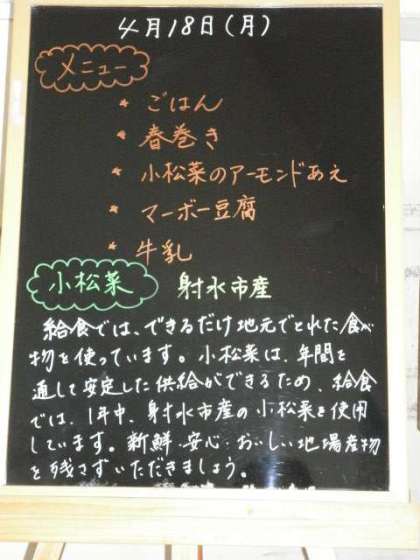 4月18日(月)
メニュー
* ごはん
* 春巻き
* 小松菜のアーモンドあえ
* マーボー豆腐
* 牛乳
小松菜 射水市産
給食では、できるだけ地元でとれた食べ
物を使っています。小松菜は、年間を
通して安定した供給ができるため、給食
では、1年中、射水市産の小松菜を使用
しています。新鮮・安心・おいしい地場産物
を残さずいただきましょう。